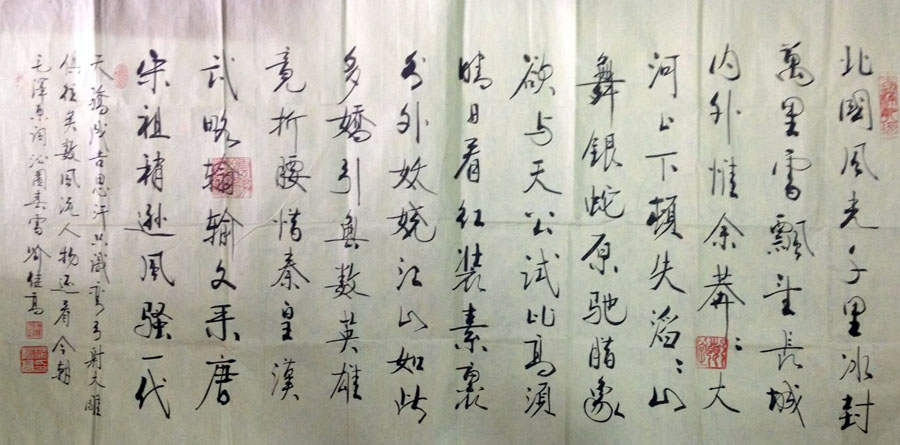 北國風光千里冰封
萬里雪飄望長城
内外惟余莽〻大
河上下頓失滔〻山
舞銀蛇原馳蜡象
欲与天公試比高須
晴日看红装素裹
分外妖娆江山如此
多嬌引無數英雄
竟折腰惜秦皇漢
武略翰输文采唐
宋祖稍遜風騷一代
天驕成吉思汗只識彎弓射大雕
俱往矣數風流人物还看今朝
毛澤東词沁園春雪